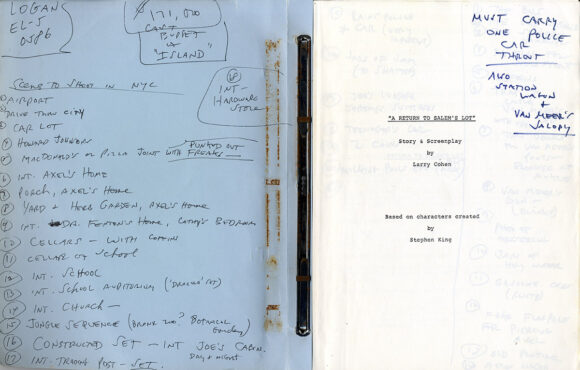 LOGAN
EL-5
0586
$171,000
CAST
BUDGET
"ISLAND"
18
INT-
HARDWARE
STORE
SCENES TO SHOOT IN NYC
1 AIRPORT
2 DRIVE THRU CITY
3 CAR LOT
4 HOWARD JOHNSON
PUNKED OUT
5 MACDONALD'S OR PIZZA JOINT WITH FREAKS
6 INT. AXEL'S HOME
7 PORCH, AXEL'S HOME
8 YARD + HERB GARDEN, AXEL'S HOME
9 INT. DR. FENTON'S HOME, CATHY'S BEDROOM
10 CELLARS - WITH COFFINS
11 CELLAR OF SCHOOL
12 INT. SCHOOL
13 INT. SCHOOL AUDITORIUM
14 INT. CHURCH -
15 JUNGLE SEQUENCE (BRONX ZOO? BOTANICAL
16 CONSTRUCTED SET - INT JOE'S CABIN.
DAY & NIGHT
17 INT. TRADING POST - SET.
MUST CARRY
ONE POLICE
CAR
THRUOUT
ALSO
STATION
WAGON
+
VAN MEER'S
JALOPY
"A RETURN TO SALEM'S LOT"
Story & Screenplay
by
Larry Cohen
Based on characters created
by
Stephen King